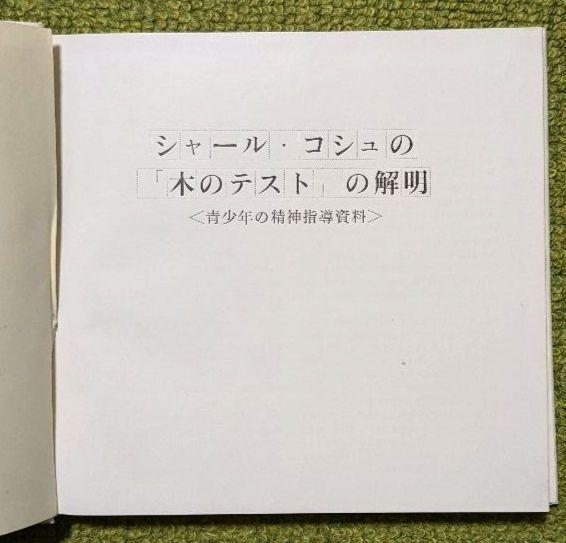 シャール・コシュの
「木のテスト」の解明
＜青少年の精神指導資料＞